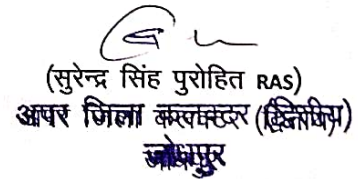 (सुरेन्द्र सिंह पुरोहित RAS)
अपर जिला कलक्टर (द्वितीय)
जोधपुर